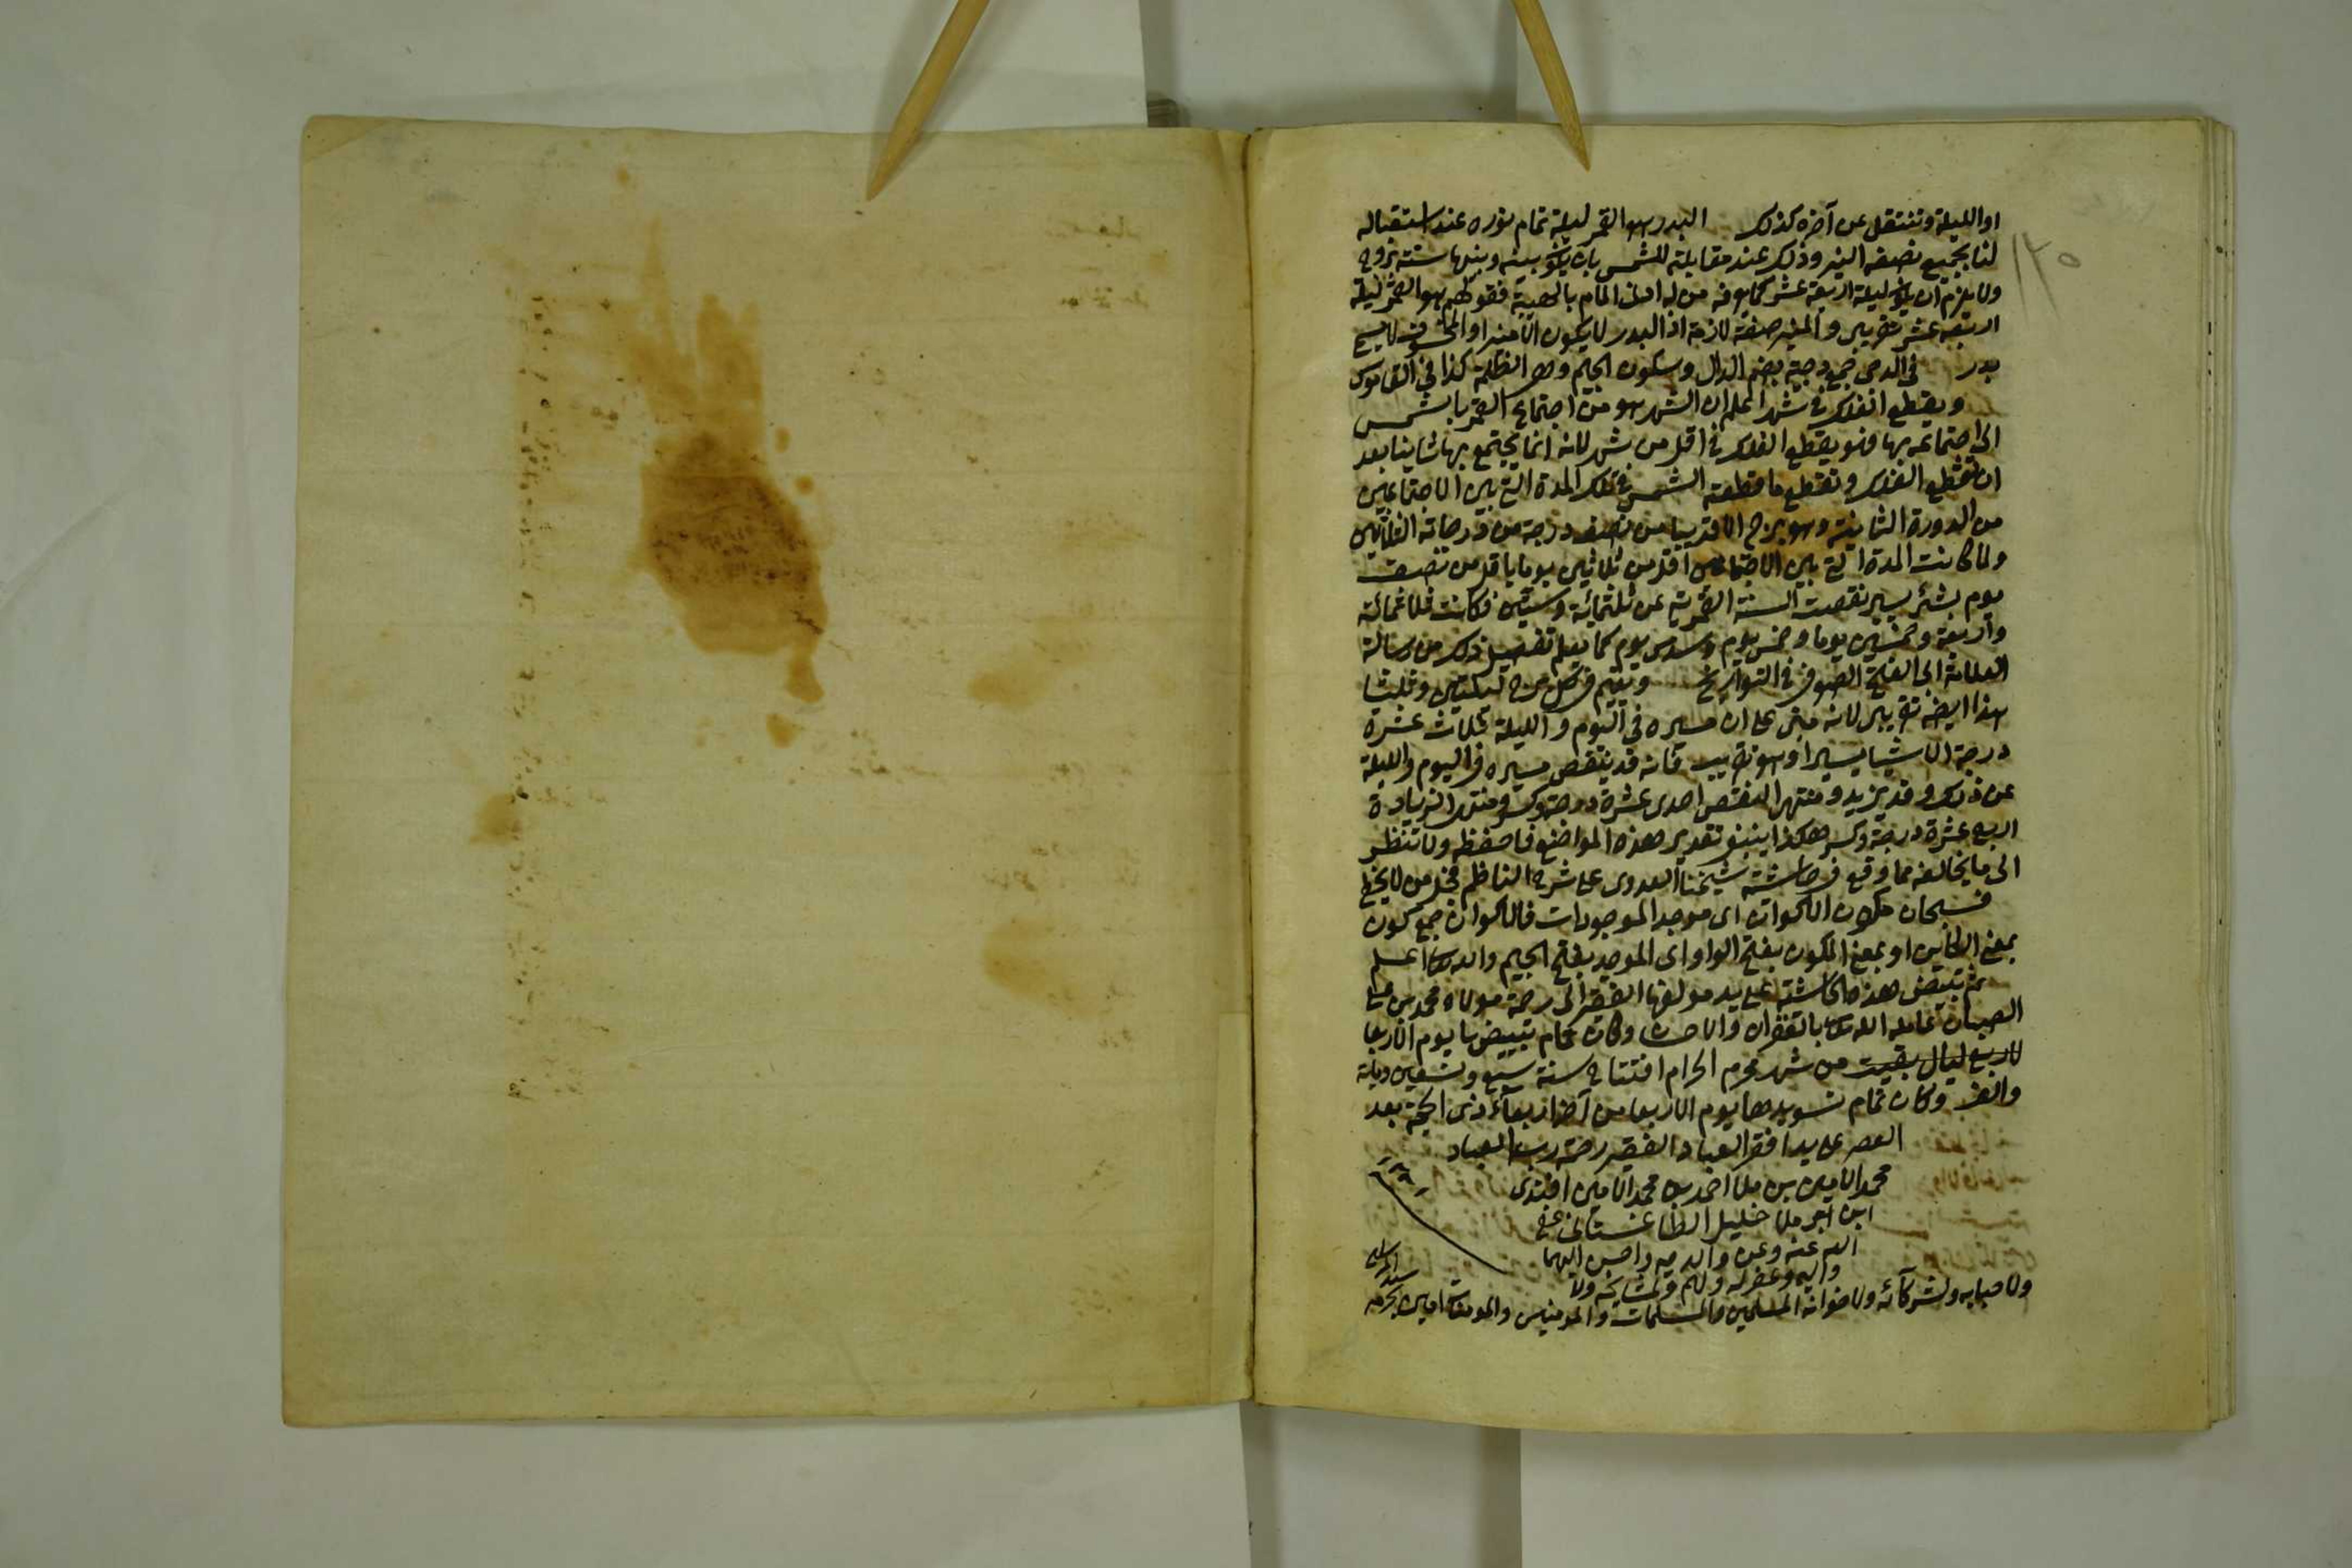 او الليلة وتنتقل عن آخره كذلك البدر هو القمر ليلة تمام نوره عند استقباله
لنا بجميع نصفه النير وذلك عند مقابلته للشمس بان يكون بينه وبينها ستة بروج
ولا يلزم ان يكون ليلة اربعة عشر كما يعرفه من له ادنى المام بالهيئة فقولهم هو القمر ليلة
اربعة عشر تقريبى والمنير صفة لازمة اذ البدر لا يكون الا منيرا او المخسوف لا يسمى
بدر فى الدجى جمع دجية بضم الدال وسكون الجيم وهى الظلمة كذا فى القاموس
ويقطع الفلك فى شهر اعلم ان الشهر هو من اجتماع القمر بالشمس
الى اجتماعه بها فهو يقطع الفلك فى اقل من شهر لانه انما يجتمع بها ثانيا بعد
ان يقطع الفلك ويقطع ما قطعته الشمس فى تلك المدة التى بين الاجتماعين
من الدورة الثانية وهو برج الا قريبا من نصف درجة من درجاته الثلاثين
ولما كانت المدة التى بين الاجتماعين اقل من ثلاثين يوما باقل من نصف
يوم بشئ يسير نقصت السنة القمرية عن ثلثمائة وستين فكانت ثلاثمائة
واربعة وخمسين يوما وخمس يوم وسدس يوم كما يعلم تفصيل ذلك من رسالة
العلامة ابى الفتح الصوفى فى التواريخ ويقيم فى كل برج ليلتين وثلثا
هذا ايضه تقريبى لانه مبنى على ان مسيره فى اليوم والليلة ثلاث عشرة
درجة الا شيا يسيرا وهو تقريب فانه قد ينقص مسيره فى اليوم والليلة
عن ذلك وقد يزيد ومنتهى النقص احدى عشرة درجة وكسر ومنتهى الزيادة
اربع عشرة درجة وكسر هكذا ينبغى تقرير هذه المواضع فاحفظه ولا تنظر
الى ما يخالفه مما وقع فى حاشية شيخنا العدوى على شرح الناظم فجل من لا يخطئ
فسبحان مكون الاكوان اى موجد الموجودات فالاكوان جمع كون
بمعنى الكائن او بمعنى المكون بفتح الواو اى الموجد بفتح الجيم والله تعا اعلم
تم تبييض هذه الحاشية على يد مولفها الفقير الى رحمة مولاه محمد بن على
الصبان عامله الله تعا بالغفران والاحسان وكان تمام تبييضها يوم الاربعا
لاربع ليال بقيت من شهر محرم الحرام افتتاح سنة سبع وتسعين وماية
والف وكان تمام تسويدها يوم الاربعا من آخر اربعاء ذى الحجة بعد
العصر على يد افقر العباد الفقير رحمة رب العباد
محمد الامين بن ملا احمد بن محمد الامين افندى
ابن ملا خليل الطاغستانى عفى
الله عنه وعن والديه واحسن اليهما
واليه وغفر له ولهم ولمشايخه ولا
ولاحبابه ولشركائه ولاخوانه المسلمين والمسلمات والمومنين والمومنات امين بحرمة
سيد المرسلين
١٢٥